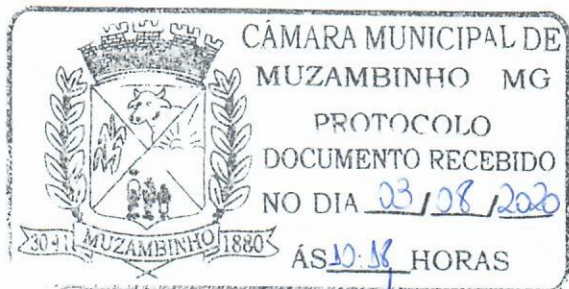 CÂMARA MUNICIPAL DE
MUZAMBINHO MG
PROTOCOLO
DOCUMENTO RECEBIDO
NO DIA 03/08/2020
ÁS 10:18 HORAS
MUZAMBINHO
1880